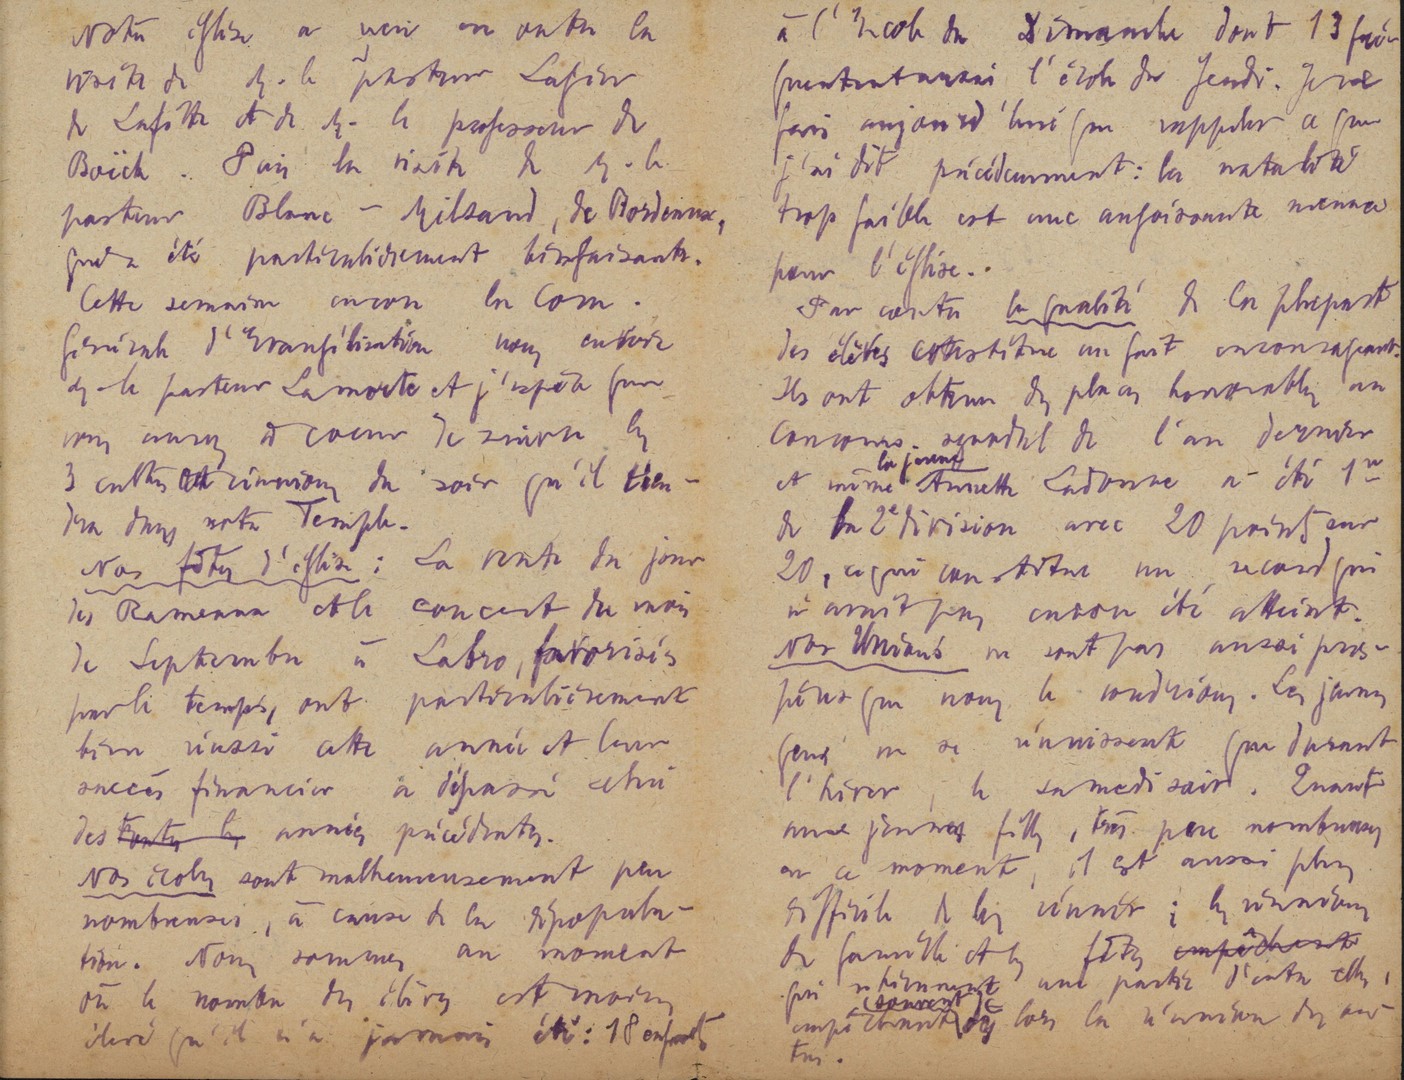 Notre église a reçu en outre la
visite de M. le pasteur Lafon
de Lafitte et de M. le professeur de
Boëck.. Puis la visite de M. le
pasteur Blanc-Milsand, de Bordeaux,
qui a été particulièrement bienfaisante.
Cette semaine encore la Com.
Générale d'Evangélisation nous envoie
M. le pasteur Lamorte et j'espère que
vous aurez à coeur de suivre les
3 cultes et réunions du soir qu'il tien-
dra dans notre Temple.
Nos fêtes d'église : La vente du jour
des Rameaux et le concert du mois
de Septembre à Labro, favorisés
par le temps, ont particulièrement
bien réussi cette année et leur
succès financier a dépassé celui
des toutes les années précédentes.
Nos écoles sont malheureusement peu
nombreuses, à cause de la dépopula-
tion. Nous sommes au moment
où le nombre des élèves est moins
élevé qu'il n'a jamais été : 18 enfants
à l'Ecole du Dimanche dont 13 fré-
quentent aussi l'école du Jeudi. Je ne
fais aujourd'hui que rappeler ce que
j'ai dit précédemment : la natalité
trop faible est une angoissante menace
pour l'église..
Par contre la qualité de la plupart
des élèves constitue un fait encourageant.
Ils ont obtenu des places honorables au
concours de l'an dernier
et même la jeune Annette Ladonne a été 1re
de la 2e division avec 20 points sur
20, ce qui constitue un record qui
n'avait pas encore été atteint.
Nos Unions ne sont pas aussi pros-
pères que nous le voudrions. Les jeunes
gens ne se réunissent que durant
l'hiver, le samedi soir. Quant
aux jeunes filles, très peu nombreuses
en ce moment, il est aussi plus
difficile de les réunir ; les réunions
de famille et les fêtes empêchent
qui retiennent une partie d'entre elles,
empêchant souvent dès lors la réunion des au-
tres.